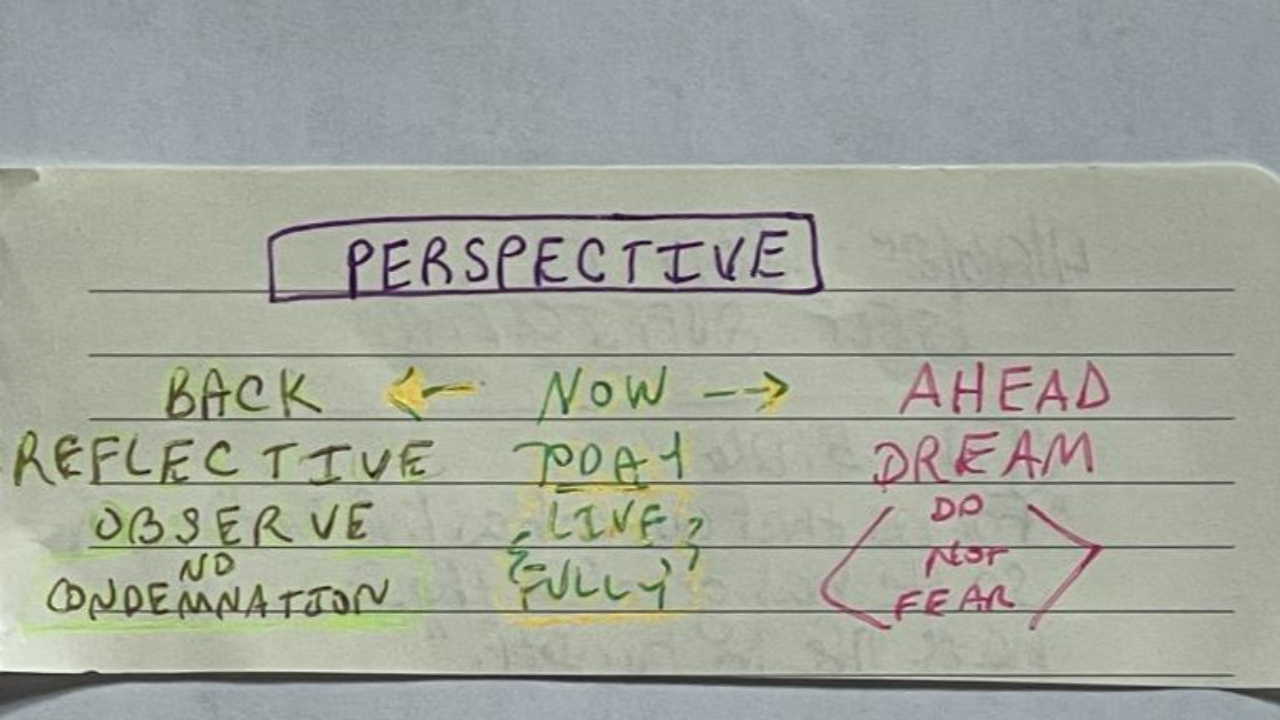 PERSPECTIVE
BACK ← NOW → AHEAD
REFLECTIVE TODAY DREAM
OBSERVE LIVE DO
NO NOT
CONDEMNATION FULLY FEAR